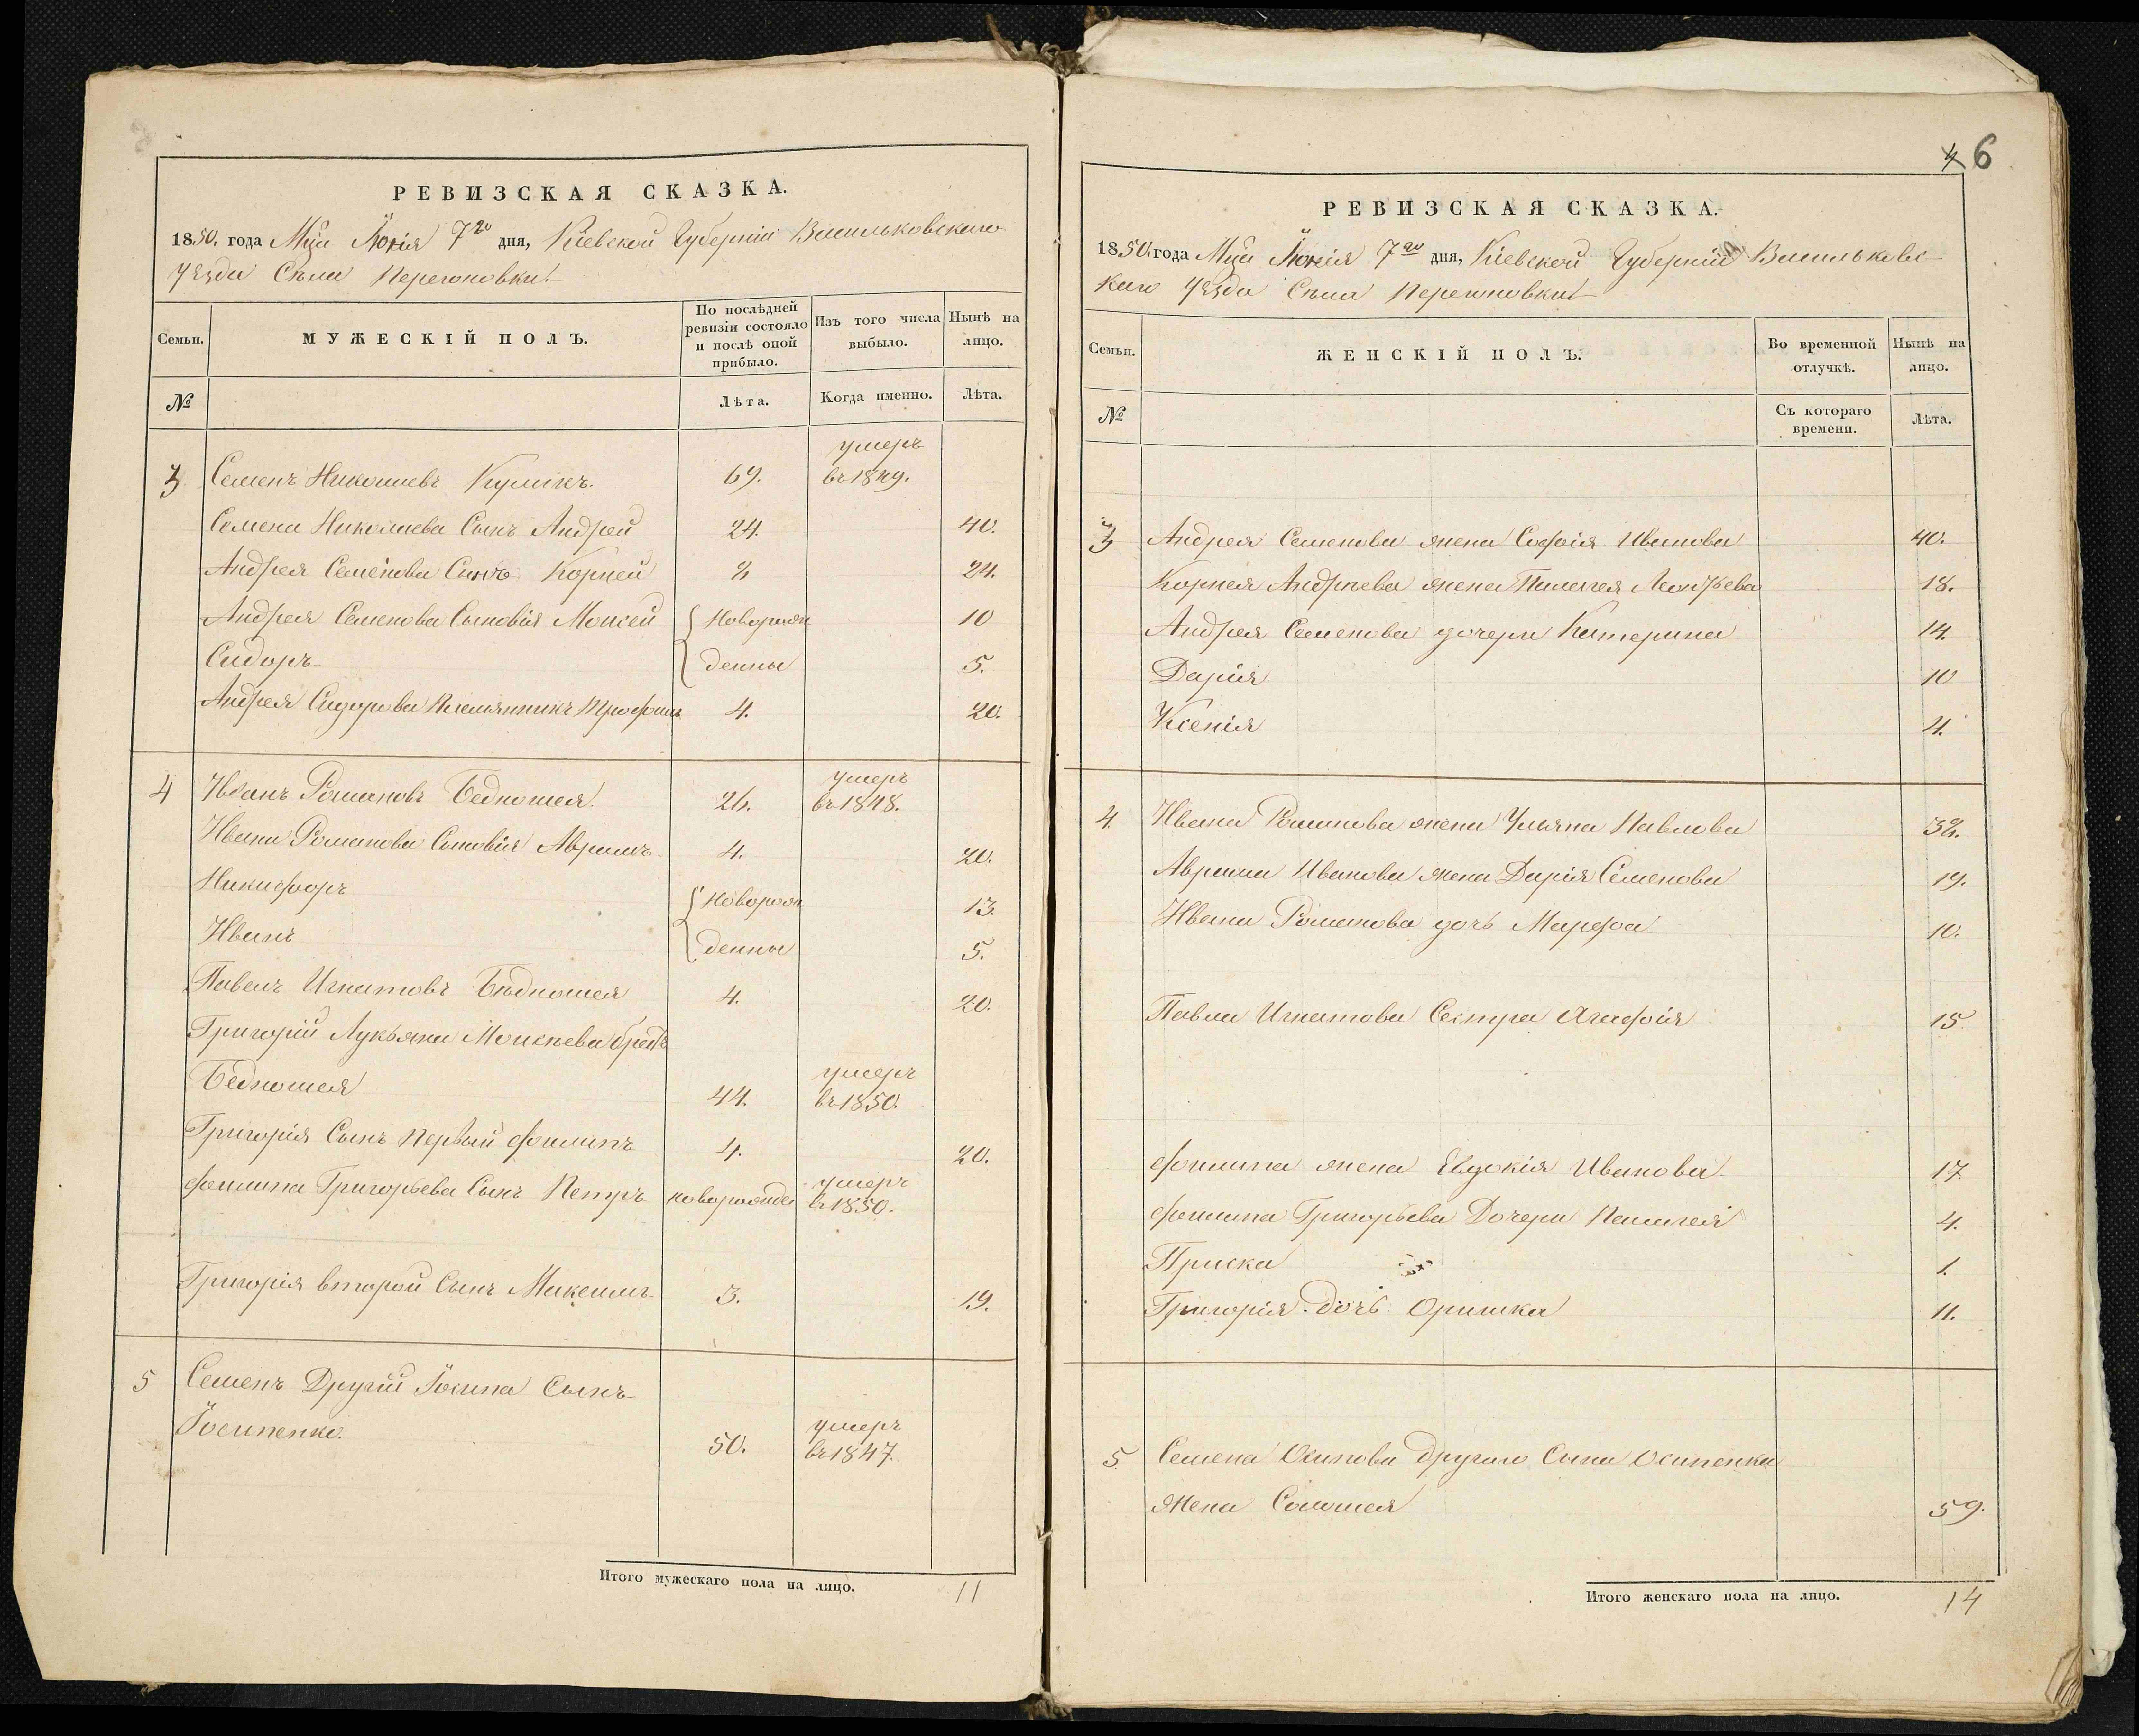 РЕВИЗСКАЯ СКАЗКА.
1850. года Мца Іюнія 7го дня, Кіевской Губерніи Васильковскаго
уѣзда Села Перегоновки.
Семьи.
МУЖЕСКІЙ ПОЛЪ.
По послѣдней ревизіи состояло и послѣ оной прибыло.
Изъ того числа выбыло.
Нынѣ на лицо.
№
Лѣта.
Когда именно.
Лѣта.
умеръ
3 Семенъ Николаевъ Куликъ. 69. въ 1849.
Семена Николаева Сынъ Андрей 24. 40.
Андрея Семенова Сынъ Корней 8 24.
Андрея Семенова Сыновія Моисей Новорож 10
Сидоръ денны 5.
Андрея Сидорова Трофимъ 4. 20.
умеръ
4 Иванъ Романовъ Бедношея. 26. въ 1848.
Ивана Романова Сыновія Аврамъ 4. 20.
Никифоръ Новорож 13.
Иванъ денны 5.
Павелъ Игнатовъ Бѣдношея 4. 20.
Григорій Лукьяна Моисѣева братъ
умеръ
Бедношея 44. въ 1850.
Григорія Сынъ первый Филипъ 4. 20.
умеръ
Филипа Григорьева Сынъ Петръ новорожде въ 1850.
Григорія второй Сынъ Максимъ 3. 19.
5 Семенъ Другій Іосипа Сынъ
умеръ
Іосипенко. 50. въ 1847.
Итого мужескаго пола на лицо. 11
4 6
РЕВИЗСКАЯ СКАЗКА.
1850. года Мца Іюнія 7го дня, Кіевской Губерніи Васильковс
каго уѣзда Села Перегоновки
Семьи.
ЖЕНСКІЙ ПОЛЪ.
Во временной отлучкѣ.
Нынѣ на лицо.
№
Съ котораго времени.
Лѣта.
3 Андрея Семенова жена Софія Иванова 40.
Корнея Андрѣева жена Палагея Леонтьева 18.
Андрея Семенова дочери Катерина 14.
Дарія 10
Ксенія 4.
4. Ивана Романова жена Ульяна Павлова 38.
Аврама Иванова жена Дарія Семенова 19.
Ивана Романова дочь Марфа 10.
Павла Игнатова Сестра Агафія 15.
Филипа жена Евдокія Иванова 17.
Филипа Григорьева Дочери Палагея 4.
Приска 1.
Григорія дочь Оришка 11.
5. Семена Осипова другаго Сына Осипенка
жена Соломея 59.
Итого женскаго пола на лицо. 14